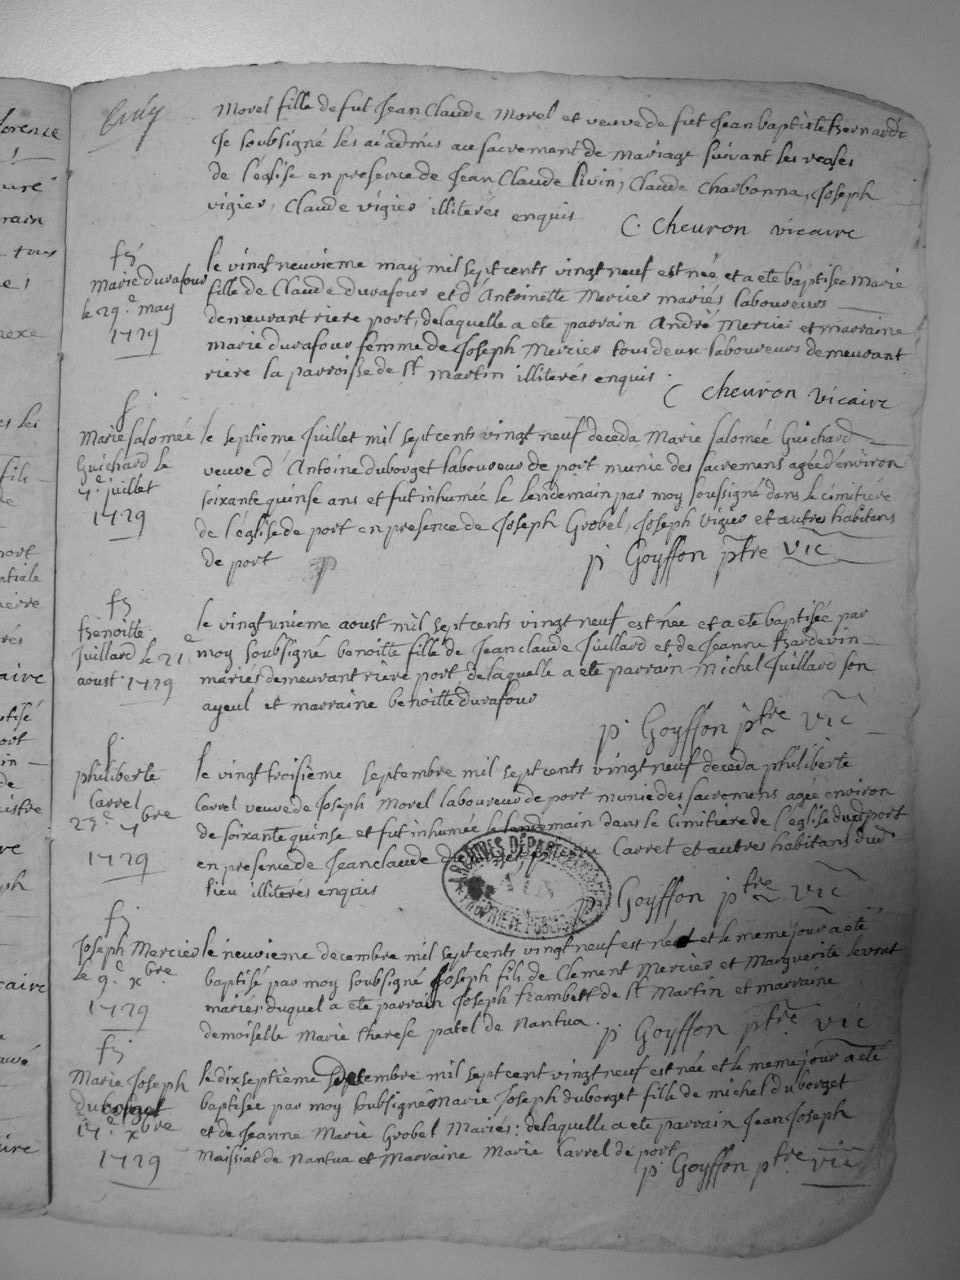 Morel fille de fut Jean Claude Morel et veuve de fut Jean baptiste Bernard
Je soubsigné les ai admis au sacrement de mariage suivant les regles
de l'église en presence de Jean Claude livin, Claude Charbonna, Joseph
vigier, Claude vigier illiterés enquis
C. Chevron vicaire
marie durafour
le 29e may
1729
le vingt neuvieme may mil sept cents vingt neuf est née et a ete baptisée marie
fille de Claude durafour et d'Antoinette Mercier mariés laboureurs
demeurant riere port, de laquelle a ete parrain André Mercier et marraine
marie durafour femme de Joseph Mercier tou deux laboureurs demeurant
riere la parroisse de St martin illiterés enquis
C chevron vicaire
Marie Salomée
Guichard le
7e juillet
1729
le septieme Juillet mil sept cents vingt neuf deceda Marie Salomée Guichard
veuve d'Antoine duborget laboureur de port munie des sacremens agée d'environ
soixante quinse ans et fut inhumée le lendemain par moy soussigné dans le cimitiére
de l'église de port en presence de Joseph Grobel, Joseph vigier et autres habitans
de port
p Goyffon ptre vic
Benoitte
Juillard le 21e
aoust 1729
le vingt unieme aoust mil sept cents vingt neuf est née et a ete baptisée par
moy soubsigné benoitte fille de Jean claude Juillard et de Jeanne hardevin
mariés demeurant riere port, de laquelle a ete parrain Michel Juillard son
ayeul et marraine benoitte durafour
p. Goyffon ptre vic
philiberte
Carrel
23e 7bre
1729
le vingt troisieme septembre mil sept cents vingt neuf deceda philiberte
Carrel veuve de Joseph Morel laboureur de port munie des sacremens agée environ
de soixante quinse et fut inhumée le lendemain dans le cimitiere de l'église dud port
en presence de Jean claude Carret et autres habitans dud
lieu illiterés enquis
p Goyffon ptre vic
ARCHIVES DÉPARTEMENTALES
AIN
PROPRIÉTÉ PUBLIQUE
Joseph Mercier
le 9e xbre
1729
le neuvieme decembre mil sept cents vingt neuf est né et le meme jour a eté
baptisé par moy soubsigné Joseph fils de Clement Mercier et Marguerite levrat
mariés duquel a ete parrain Joseph frambert de St Martin et marraine
demoiselle Marie therese patel de Nantua.
p Goyffon ptre vic
Marie Joseph
Duborget
17e xbre
1729
le dix septieme decembre mil sept cent vingt neuf est née et le meme jour a eté
baptisée par moy soubsigné Marie Joseph duborget fille de michel duborget
et de Jeanne Marie Grobel Mariés: de laquelle a ete parrain Jean Joseph
Maissiat de Nantua et Marraine Marie Carrel de port
p. Goyffon ptre vic